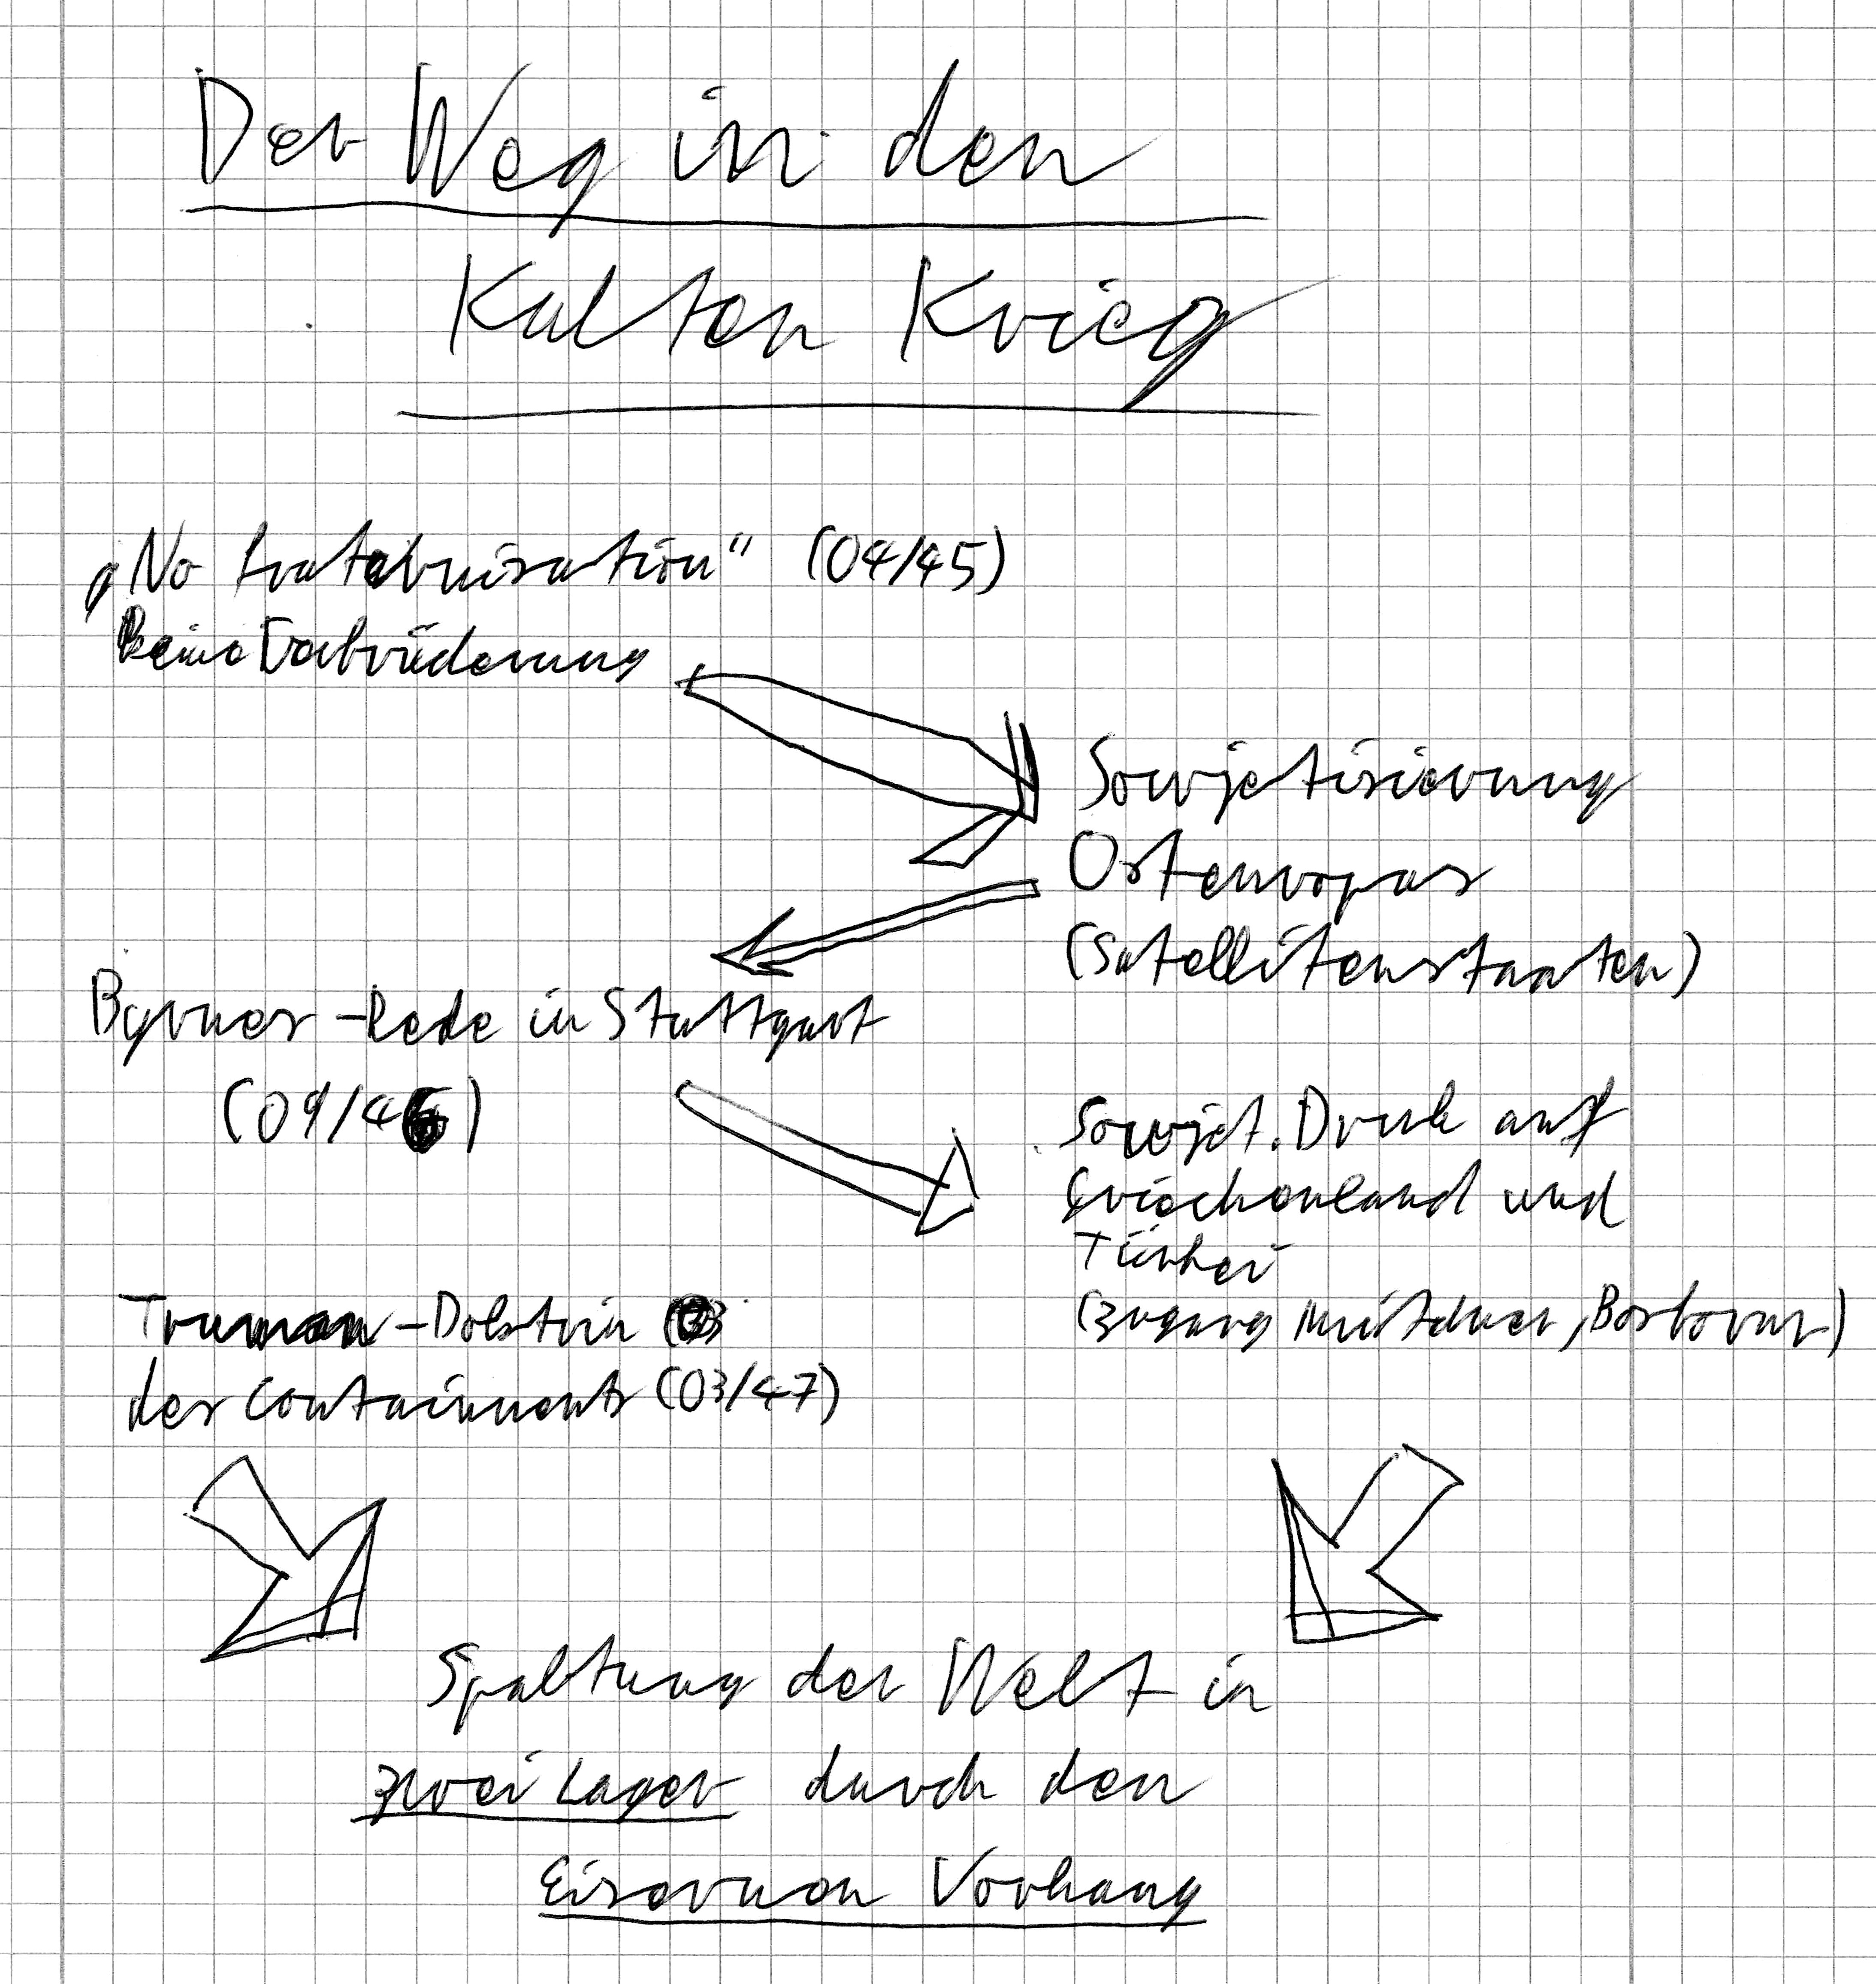 Der Weg in den
Kalten Krieg
„No fraternisation" (04/45)
Keine Verbrüderung
Sowjetisierung
Osteuropas
(Satellitenstaaten)
Byrnes-Rede in Stuttgart
(09/46)
Sowjet. Druck auf
Griechenland und
Türkei
(Zugang Mittelmeer, Bosborus)
Truman-Doktrin
des Containments (03/47)
Spaltung der Welt in
zwei Lager durch den
Eisernen Vorhang